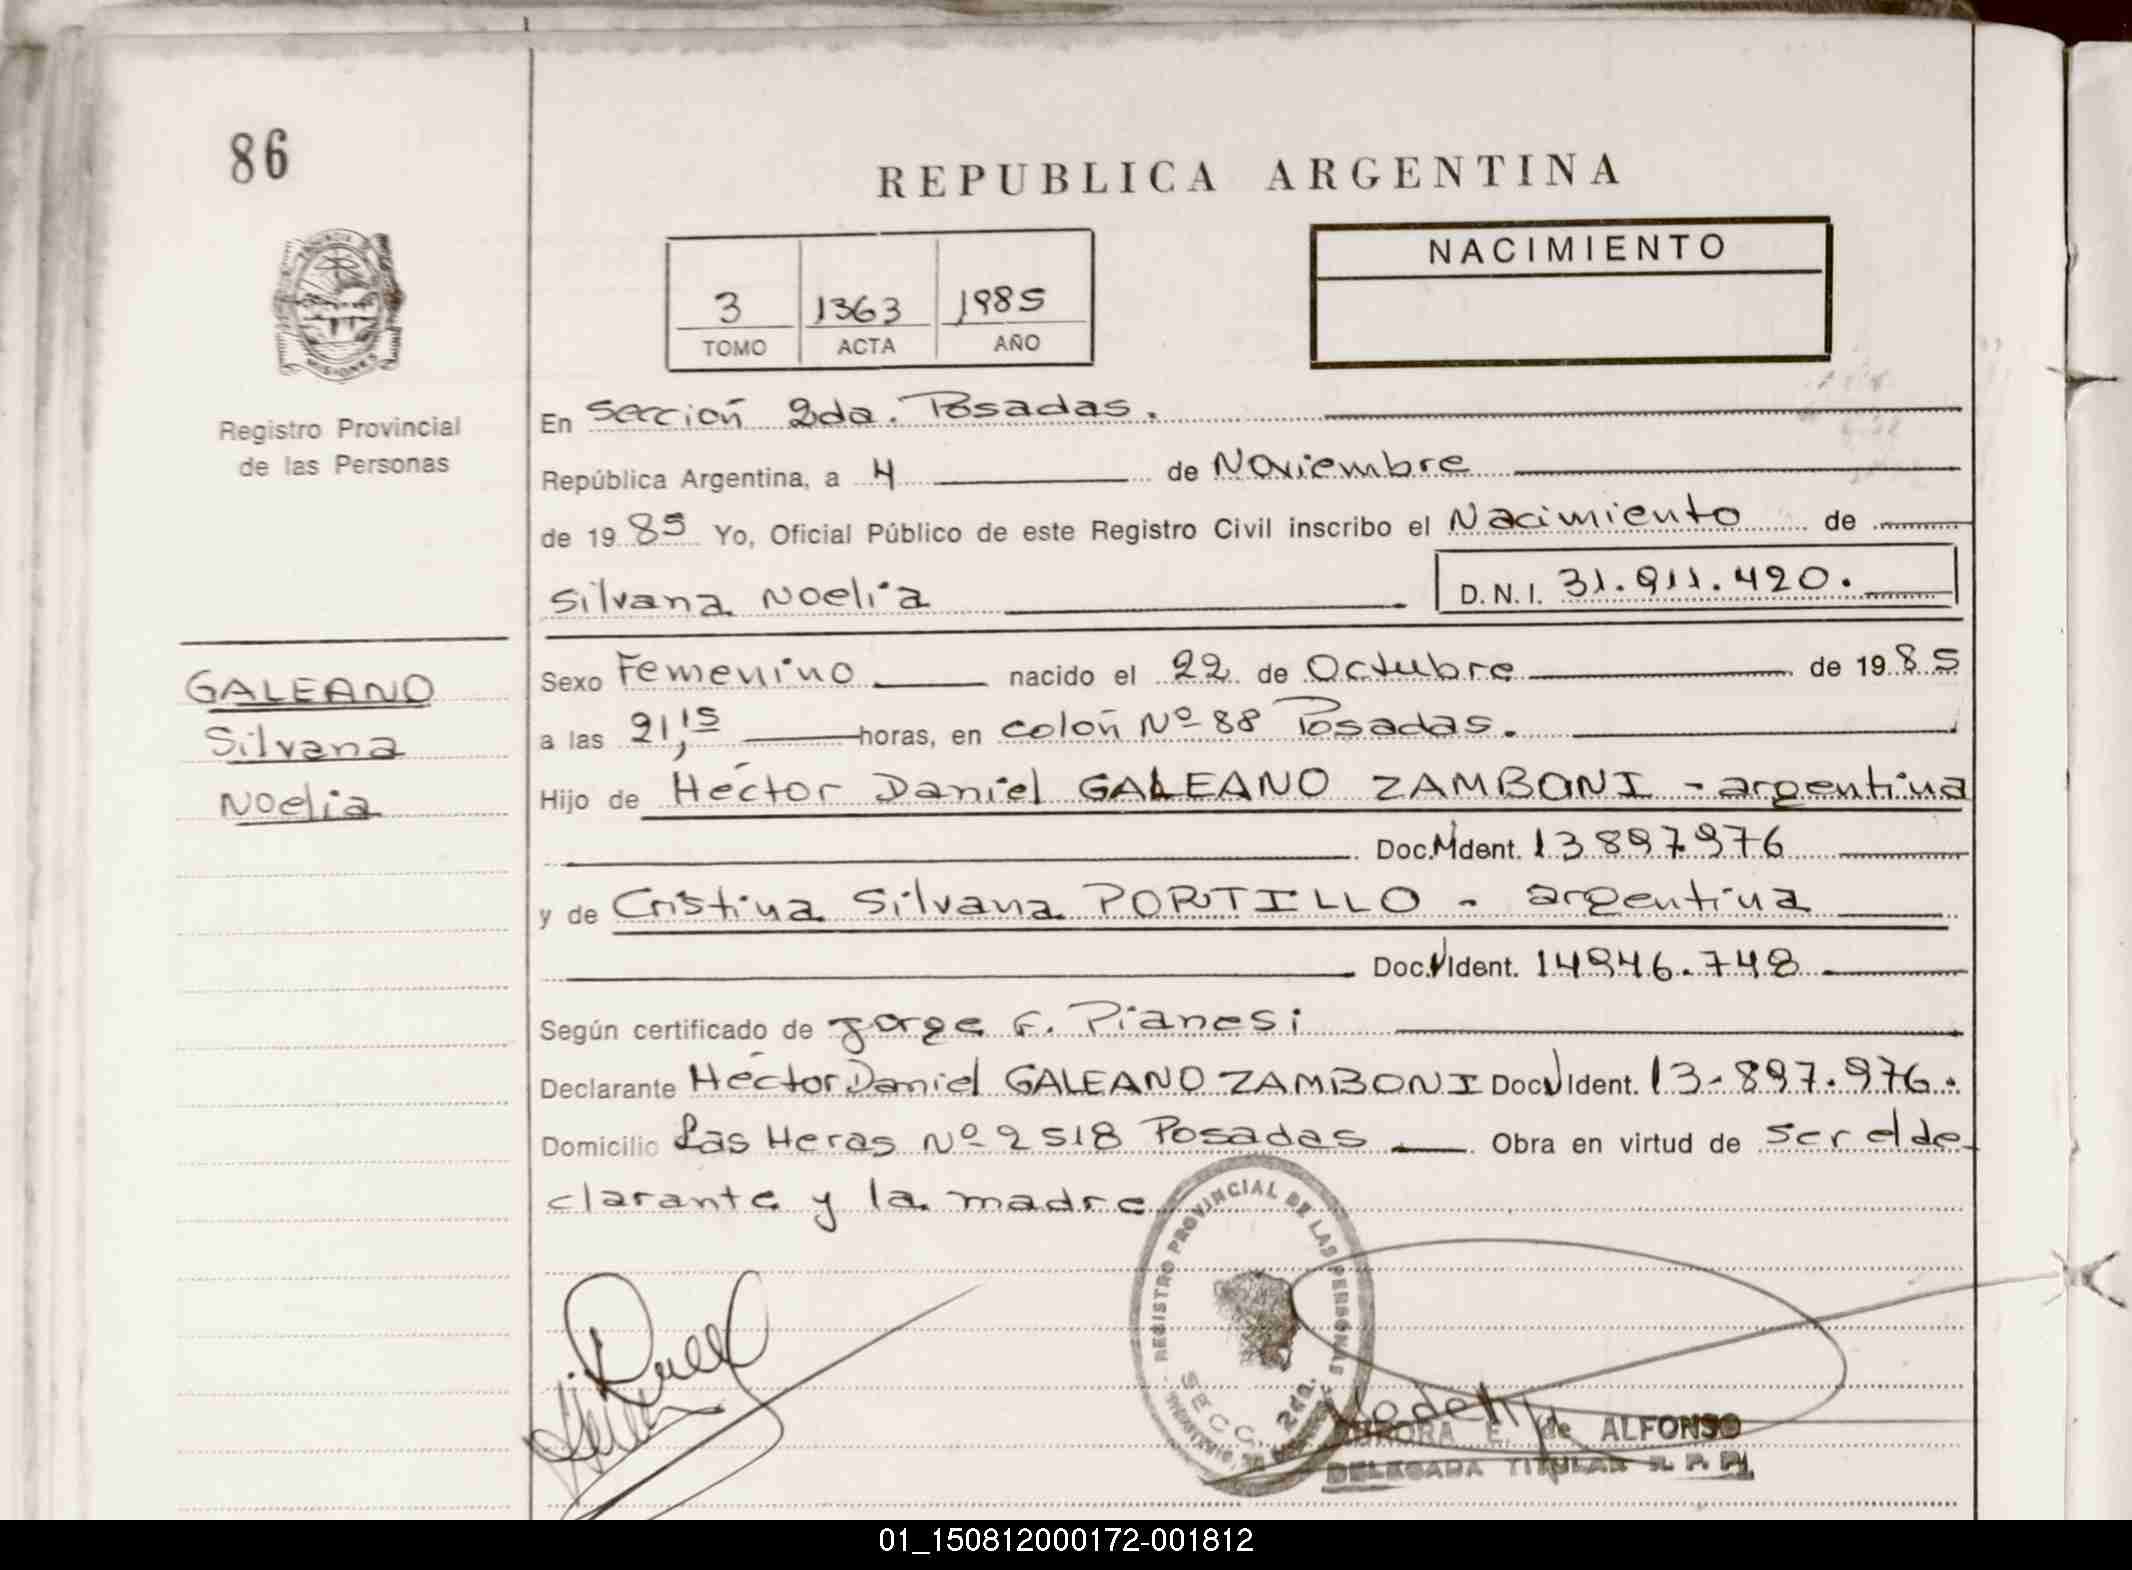 86
REPUBLICA ARGENTINA
PROVINCIA DE MISIONES
NACIMIENTO
3 1363 1985
TOMO ACTA AÑO
Registro Provincial
de las Personas
En Sección 2da. Posadas.
República Argentina, a 4 de Noviembre
de 1985 Yo, Oficial Público de este Registro Civil inscribo el Nacimiento de
Silvana Noelia D.N.I. 31.911.420.
GALEANO
Silvana
Noelia
Sexo Femenino nacido el 22 de Octubre de 1985
a las 21,15 horas, en Colón Nº 88 Posadas.
Hijo de Héctor Daniel GALEANO ZAMBONI - argentina
Doc. Ident. 13897976
y de Cristina Silvana PORTILLO - argentina
Doc. Ident. 14946.748
Según certificado de Jorge F. Pianesi
Declarante Héctor Daniel GALEANO ZAMBONI Doc Ident. 13-897.976.
Domicilio Las Heras Nº 2518 Posadas. Obra en virtud de ser el de-
clarante y la madre
REGISTRO PROVINCIAL DE LAS PERSONAS
SECC. 2da.
AURORA E. de ALFONSO
DELEGADA TITULAR R. P. P.
01_150812000172-001812